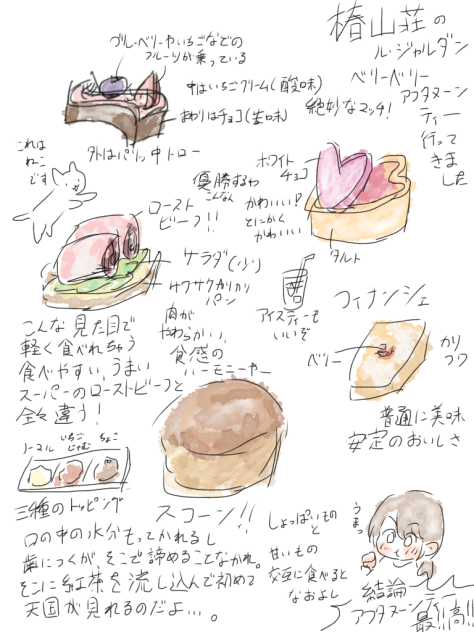 椿山荘の
ル・ジャルダン
ベリーベリー
アフタヌーン
ティー
行って
きま
した
ブルーベリーやいちごなどの
フルーツが乗っている
中はいちごクリーム(酸味)
まわりはチョコ(苦味)
絶妙なマッチ!
外はパリッ中トロー
これは
ねこ
です
優勝するわ
こんなん
ホワイト
チョコ
かわいい!?
とにかく
かわいい
タルト
ロースト
ビーフ!!
サラダ(いい)
サクサクカリカリ
パン
肉が
やわらかい
食感の
ハーモニーやー
アイスティーも
いいぞ
こんな見た目で
軽く食べれちゃう
食べやすい、うまい
スーパーのローストビーフと
全々違う!
フィナンシェ
ベリー
カリ
フワ
普通に美味
安定のおいしさ
ノーマル
いちご
じゃむ
ちょこ
三種のトッピング
スコーン!!
口の中の水分もってかれるし
歯につくが、そこで諦めることなかれ。
そこに紅茶を流し込んで初めて
天国が見れるのだよ…。
しょっぱいもの
と
甘いもの
交互に食べると
なおよし
うまっ
結論
アフタヌーンティー
最!!高!!